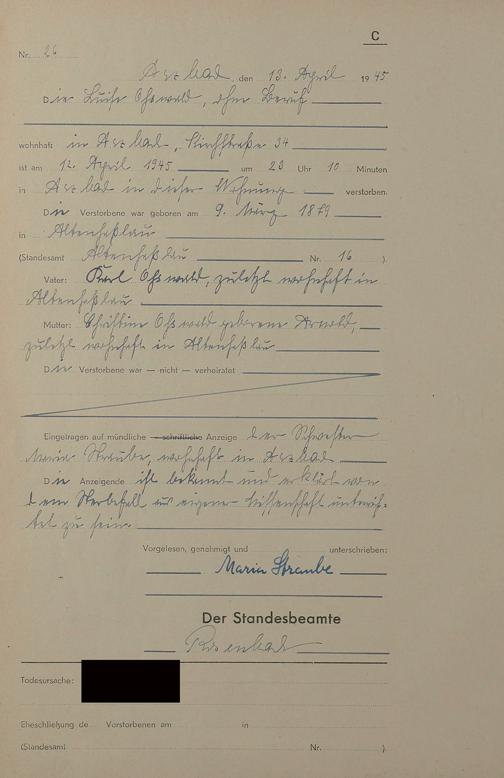 C
Nr. 26
Aszbad, den 13. April 1945
Die Luise Oßwald, ohne Beruf
wohnhaft in Aszbad, Kirchstraße 34
ist am 12. April 1945 um 23 Uhr 10 Minuten
in Aszbad in dieser Wohnung verstorben.
Die Verstorbene war geboren am 9. März 1879
in Altenhaßlau
(Standesamt Altenhaßlau Nr. 16 ).
Vater: Karl Oßwald, zuletzt wohnhaft in
Altenhaßlau
Mutter: Christine Oßwald geborene Arnold,
zuletzt wohnhaft in Altenhaßlau
Die Verstorbene war — nicht — verheiratet
Eingetragen auf mündliche — schriftliche Anzeige der Schwester
Maria Straube, wohnhaft in Aszbad.
Die Anzeigende ist bekannt und erklärt von
dem Sterbefall aus eigener Wissenschaft unterrich-
tet zu sein.
Vorgelesen, genehmigt und unterschrieben:
Maria Straube
Der Standesbeamte
Todesursache:
Eheschließung de Verstorbenen am in
(Standesamt Nr. ).